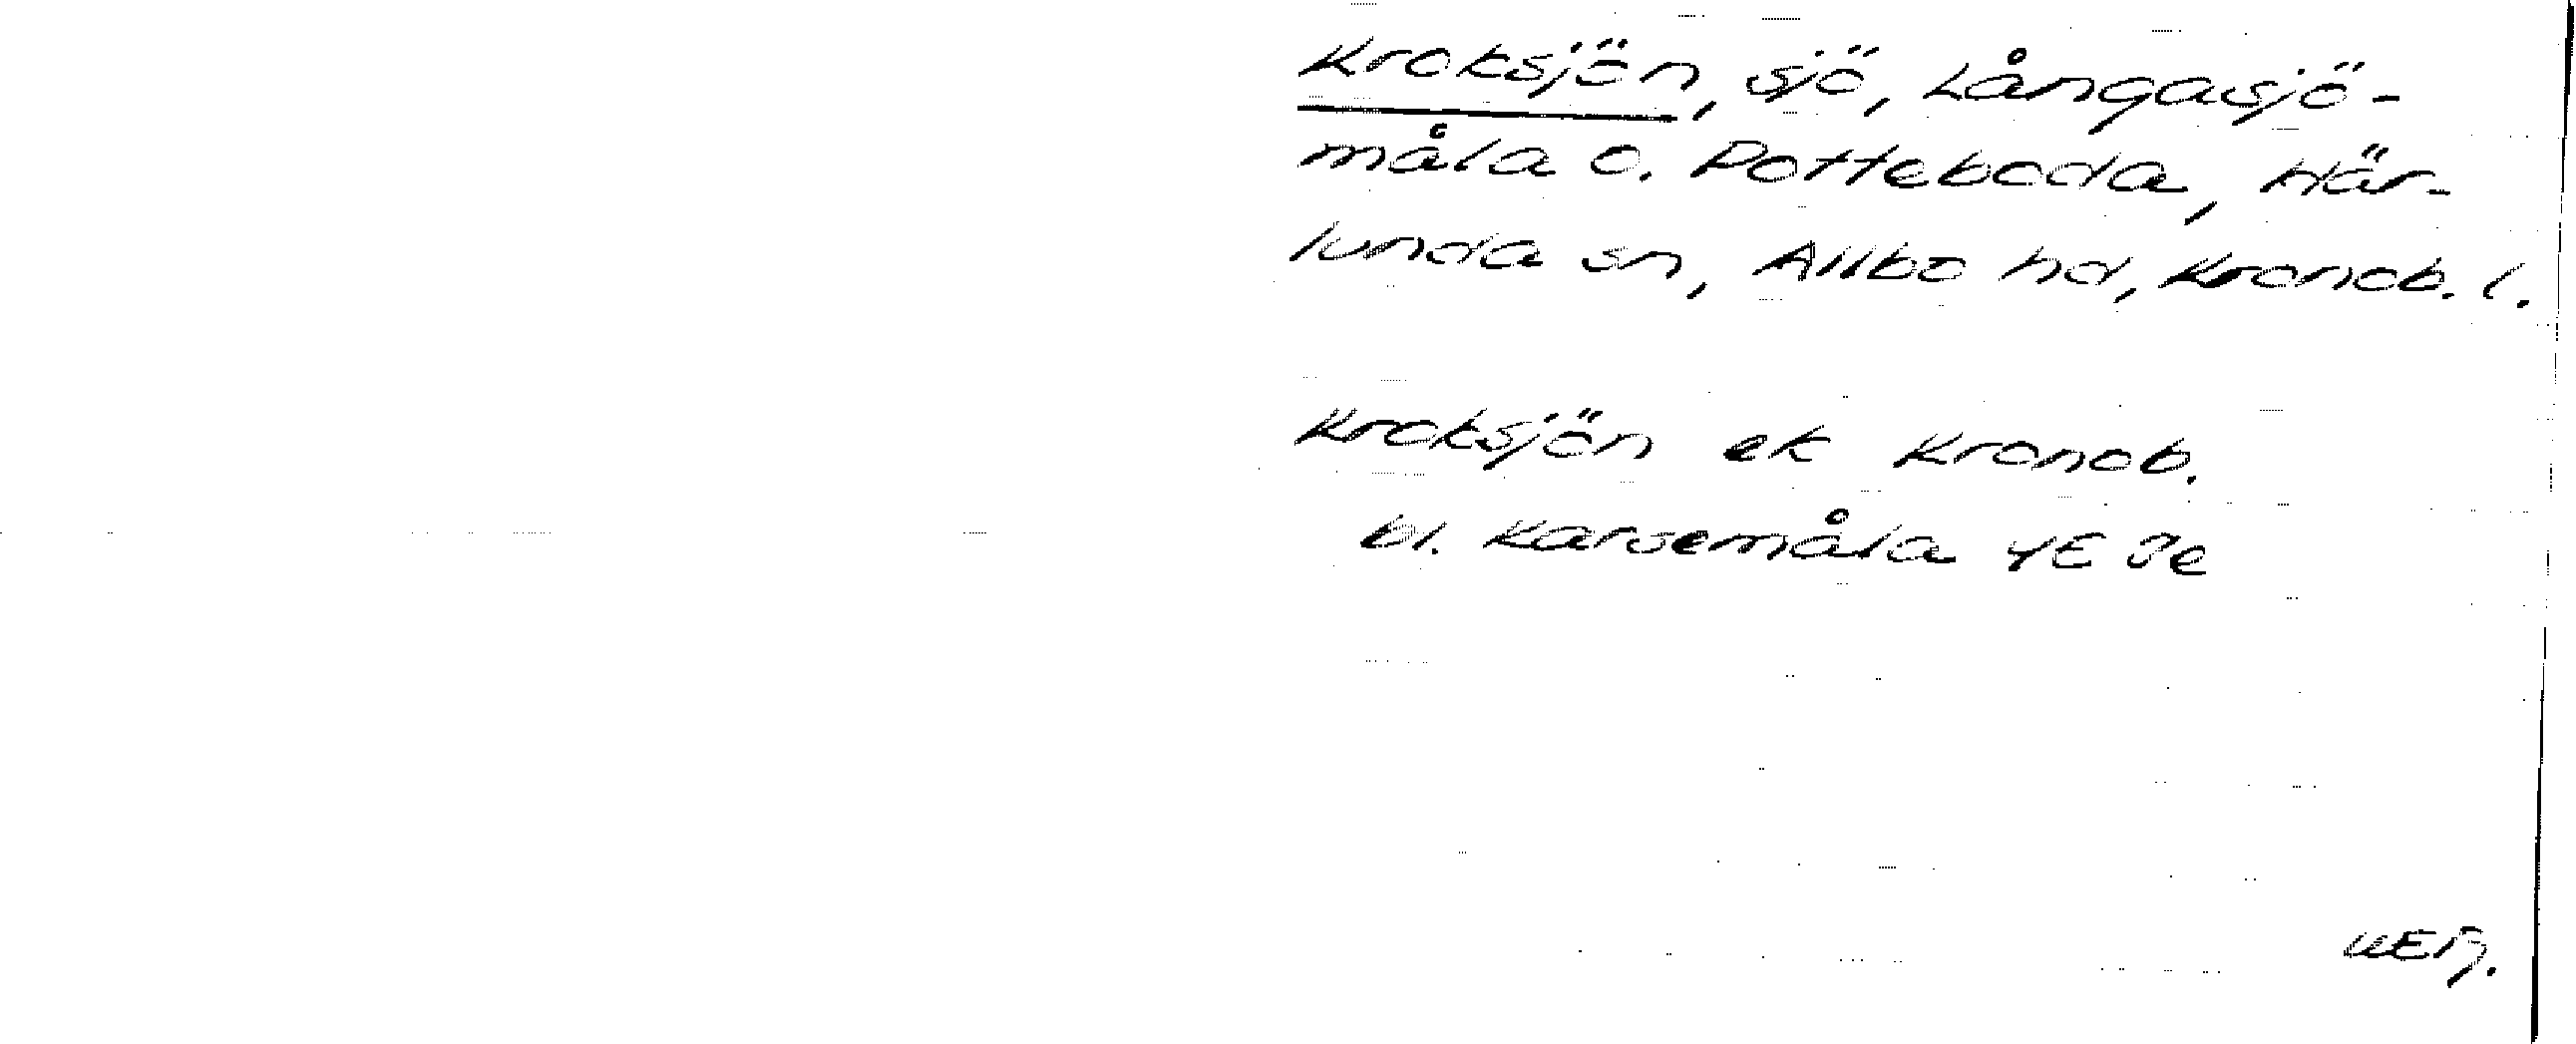 Kroksjön, sjö, Långasjö-
måla o. Potteboda, Här-
lunda sn, Allbo hd, Kronob. l.
Kroksjön ek Kronob.
bl. Karsemåla 4E Je